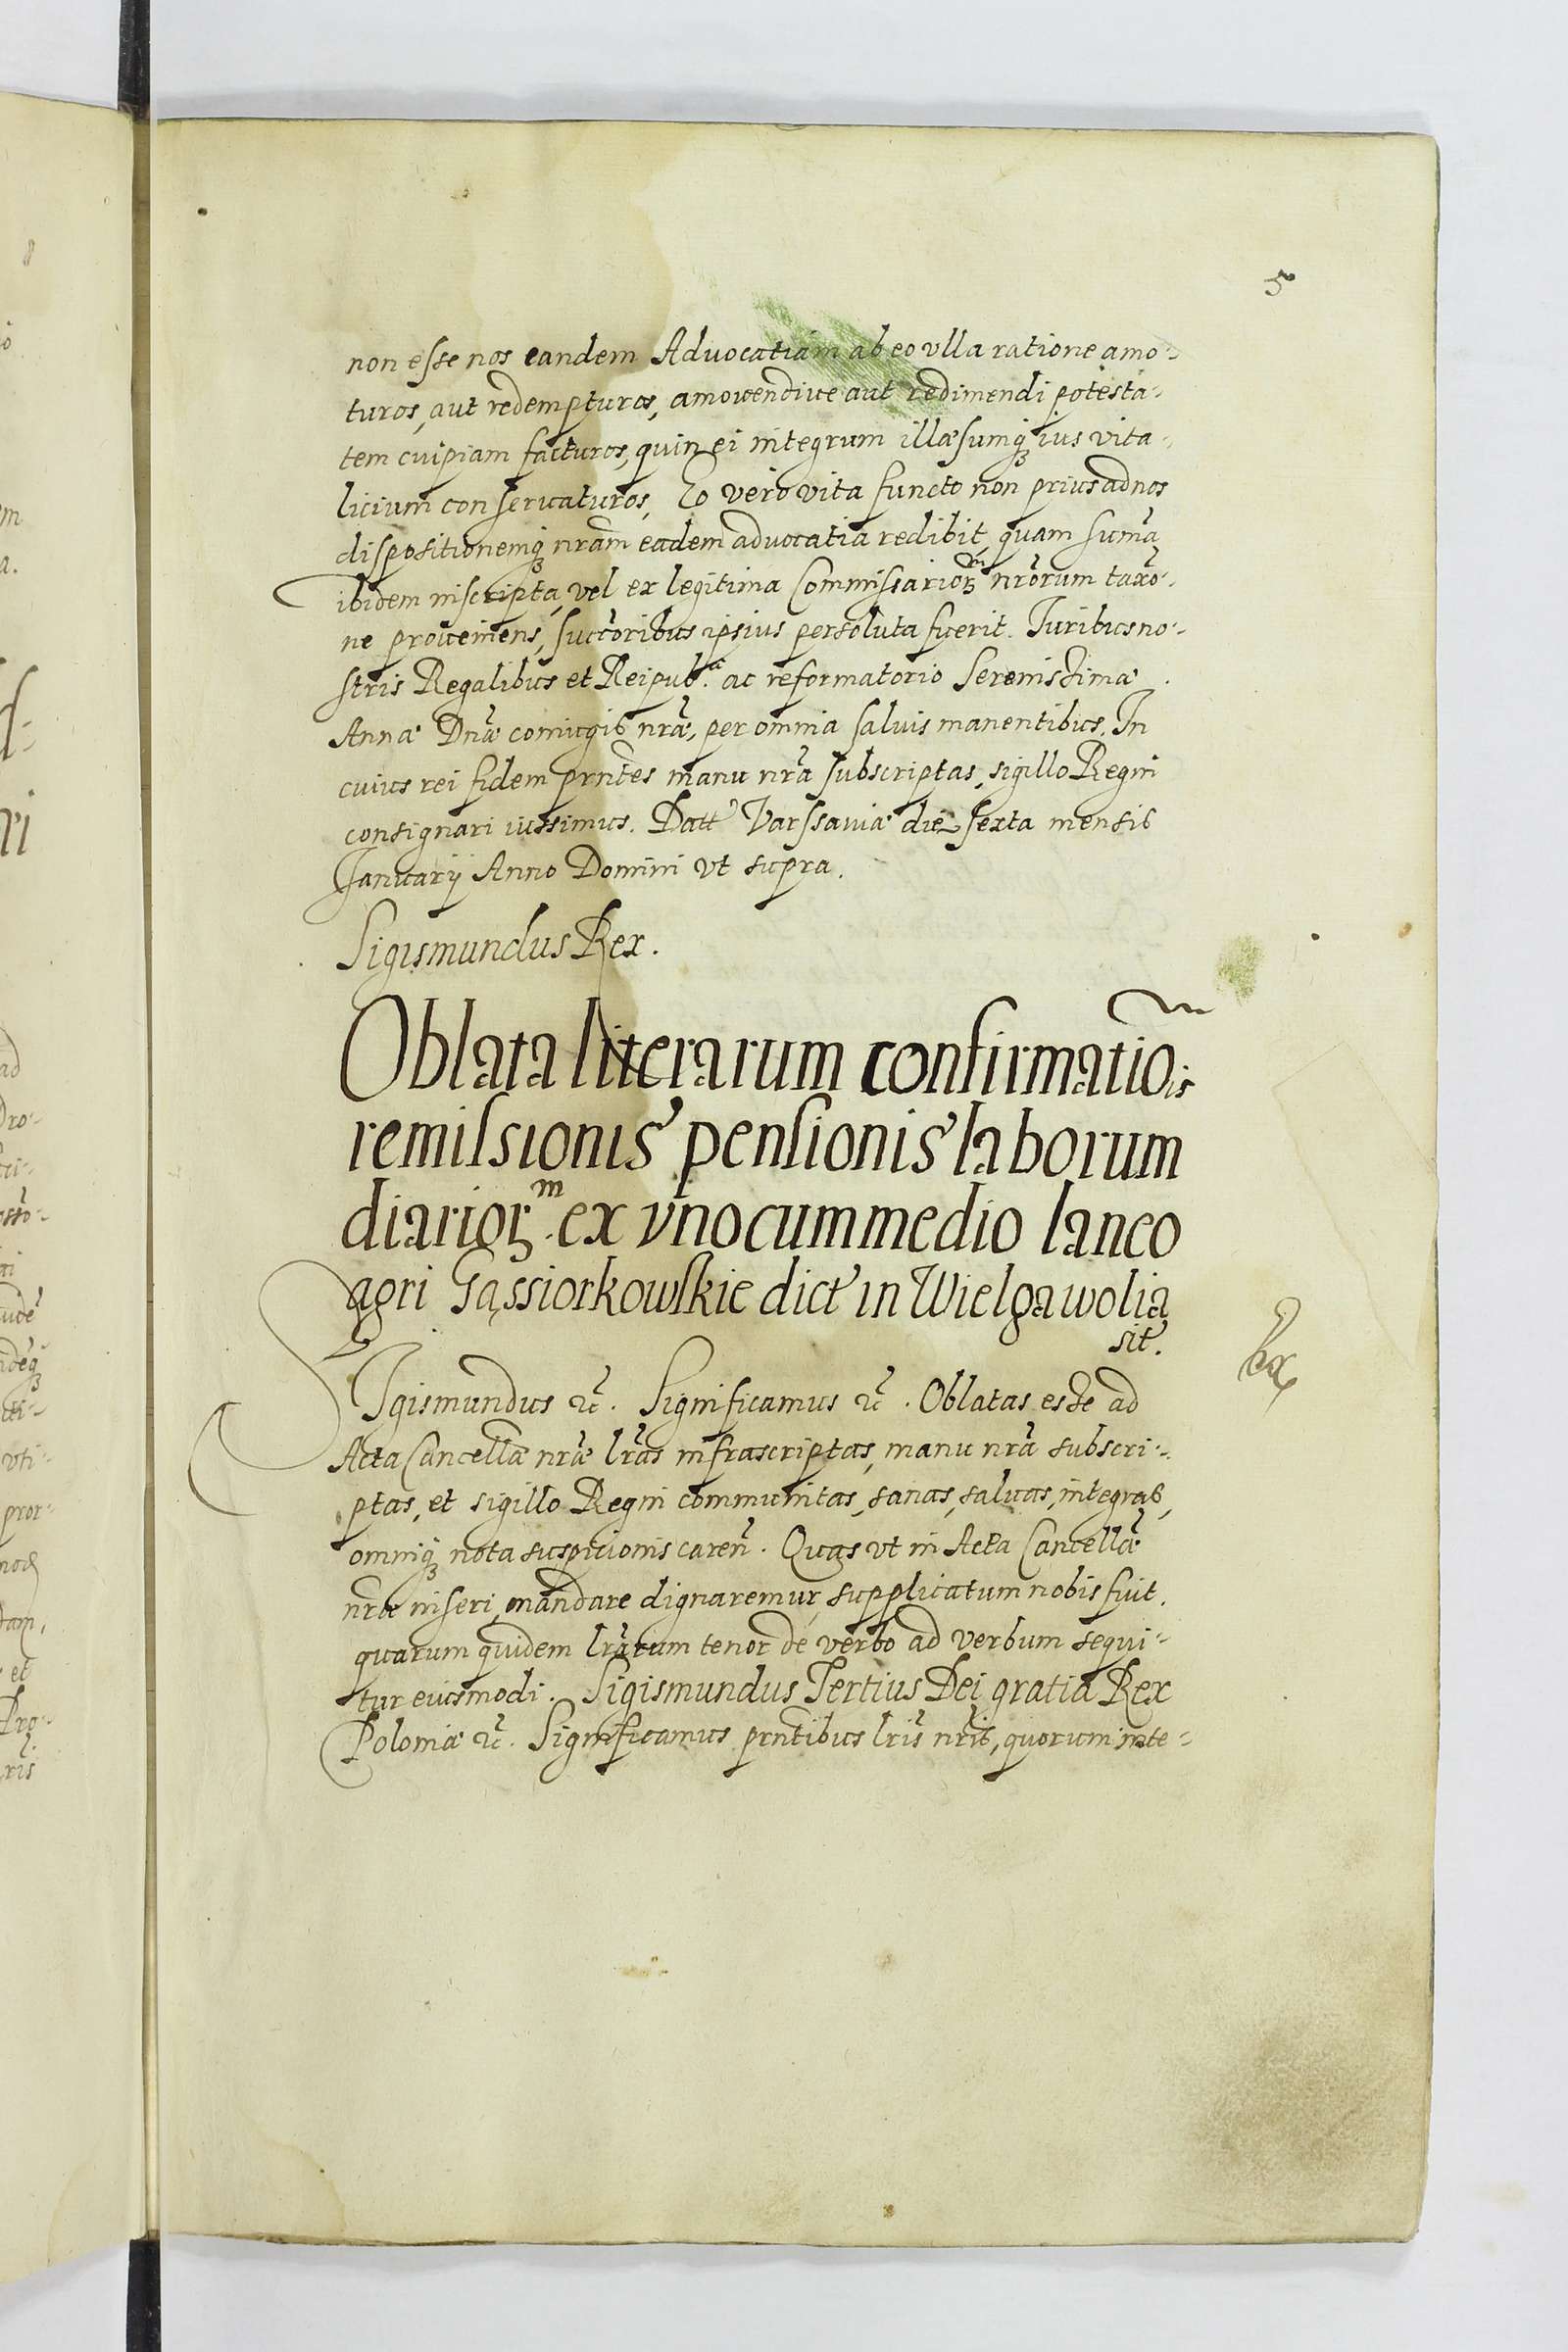 5
non esse nos eandem Aduocatiam ab eo vlla ratione amo-
turos, aut redempturos, amouendiue aut redimendi potesta-
tem cuipiam facturos, quin ei integrum illæsumq₃ ius vita-
licium conseruaturos, Eo vero vita functo non prius ad nos
dispositionemq₃ nrãm eadem aduocatia redibit, quam sum̃a
ibidem inscripta, vel ex legitima Commissarioꝝ nrõrum taxõ-
ne proueniens, succõribus ipsius persoluta fuerit. Iuribus no-
stris Regalibus et Reipubᶜᵃ. ac reformatorio Serenissimæ
Annæ Dnæ̃ coniugis nræ̃, per omnia saluis manentibus. In
cuius rei fidem prñtes manu nrã subscriptas, sigillo Regni
consignari iussimus. Datt̃ Varssauiæ die sexta mensis
Ianuarij Anno Domini vt supra.
Sigismundus Rex.
Oblata literarum confirmatiõis
remissionis pensionis laborum
diarioꝝᵐ ex vno cum medio laneo
agri Gąssiorkowskie dict̃ in Wielgawolia
sit̃.
SIgismundus ꝛc̃. Significamus ꝛc̃. Oblatas esse ad
Acta Cancellæ̃ nræ̃ lrãs infrascriptas, manu nrã subscri-
ptas, et sigillo Regni communitas, sanas, saluas, integras,
omniq₃ nota suspicionis careñ. Quas vt in Acta Cancellæ̃
nræ̃ inseri mandare dignaremur, supplicatum nobis fuit.
quarum quidem lrãrum tenor de verbo ad verbum sequi-
tur eiusmodi. Sigismundus Tertius Dei gratia Rex
Poloniæ ꝛc̃. Significamus prñtibus lrĩs nrĩs, quorum inte-